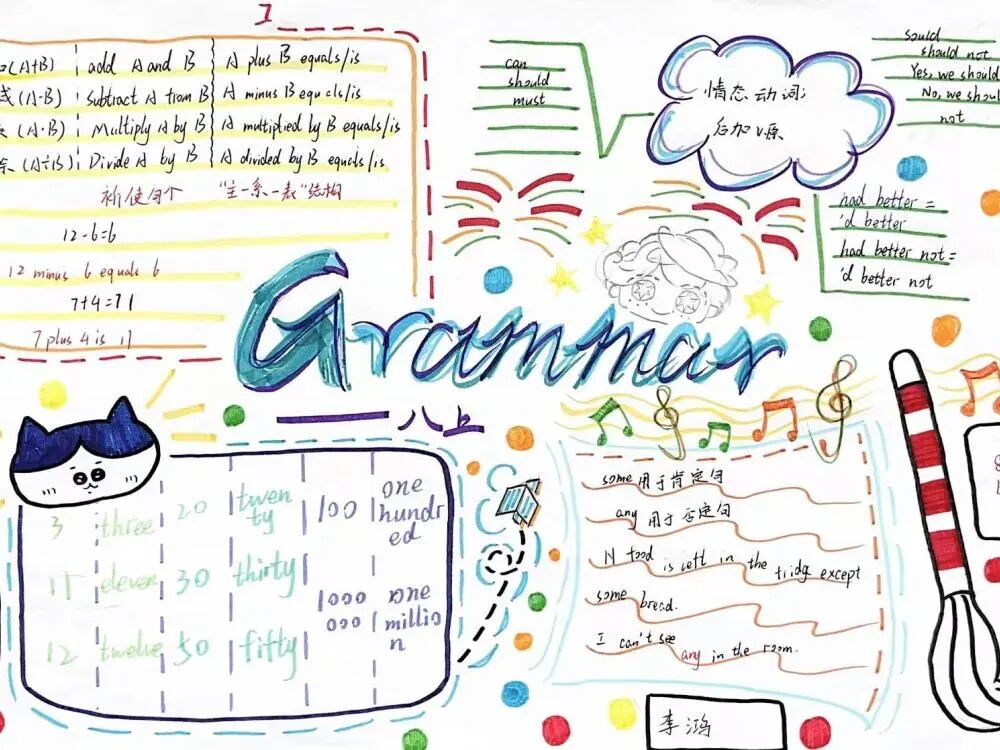 (A+B) add A and B A plus B equals/is
(A-B) Subtract A from B A minus B equals/is
(A·B) Multiply A by B A multiplied by B equals/is
(A÷B) Divide A by B A divided by B equals/is
祈使句个 "主一系一表"结构
12-6=6
12 minus 6 equals 6
7+4=11
7 plus 4 is 11
can
should
must
情态动词;
后加v原
sould
should not
Yes, we should
No, we shoul
not
had better =
'd better
had better not =
'd better not
Grammar
八上
3 three 20 twen
ty 100 one
hundr
ed
11 eleven 30 thirty 1000
000 one
millio
n
12 twelve 50 fifty
some用于肯定句
any用于否定句
N food is left in the fridg except
some bread.
I can't see
any in the room.
李鸿